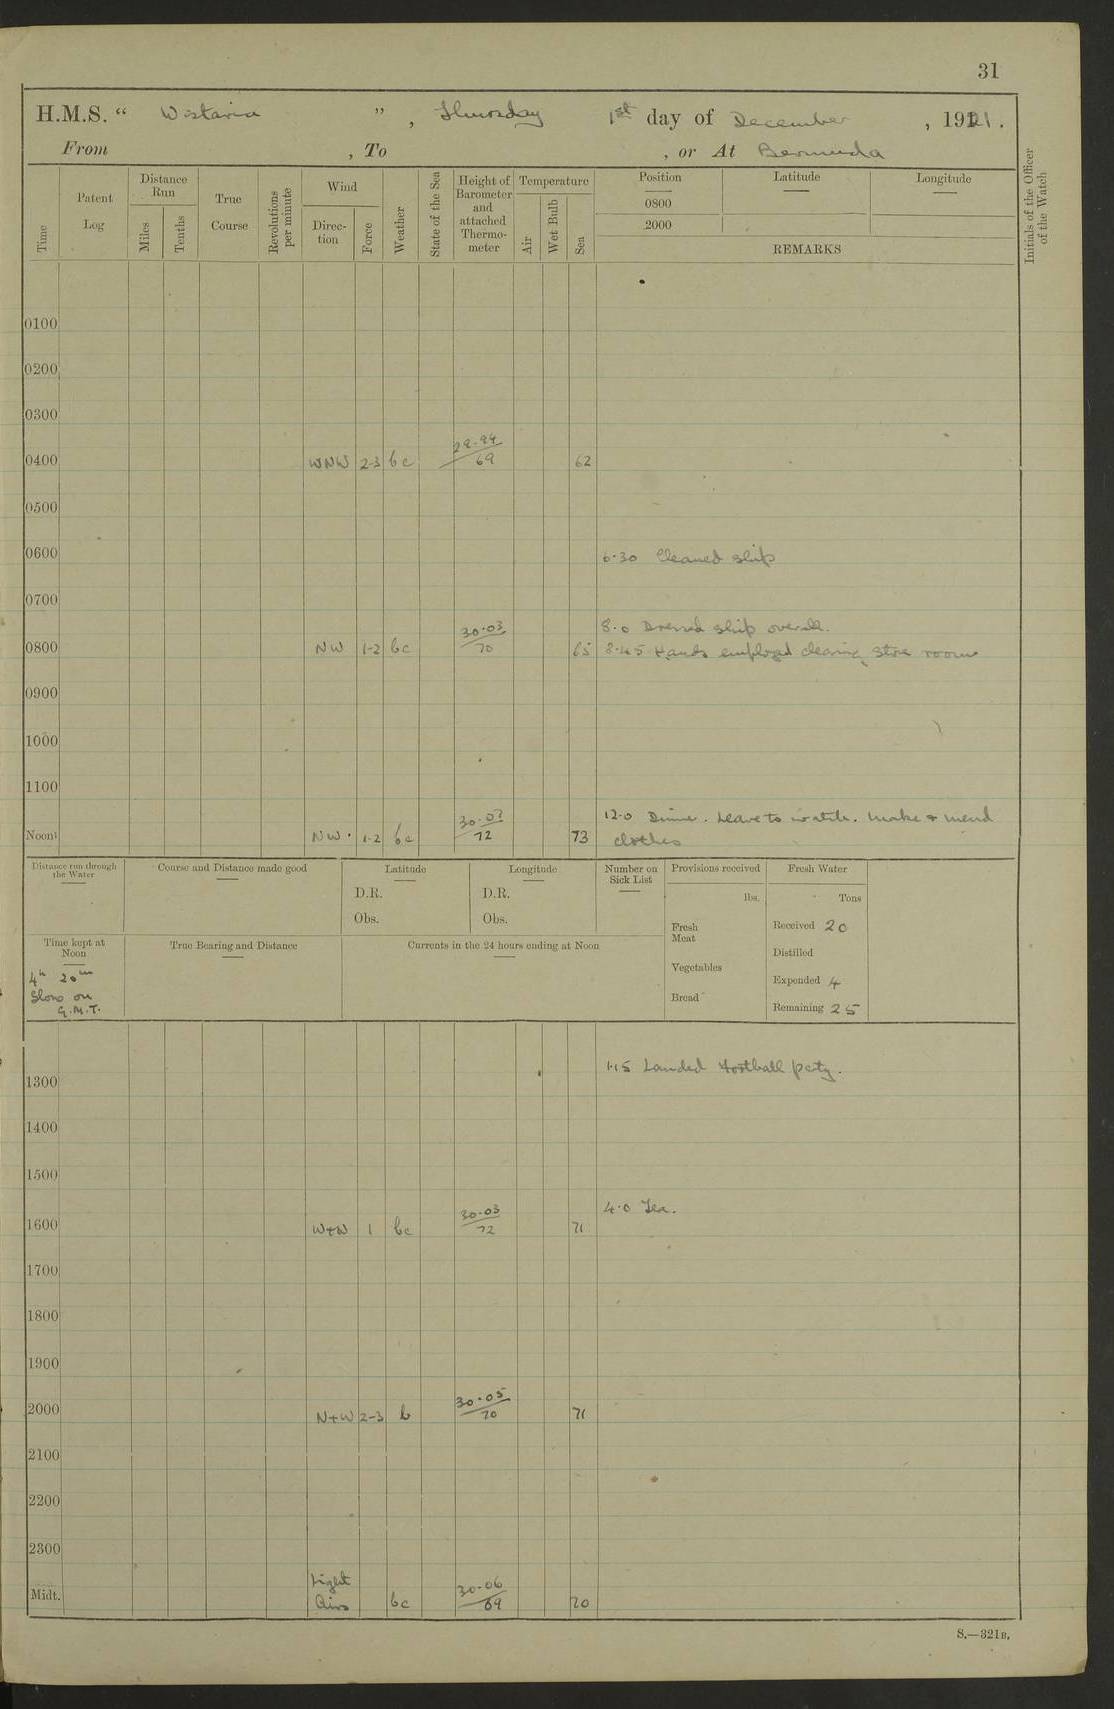 31
H.M.S. “ Wistaria ” , Thursday 1st day of December , 1921 .
From , To , or At Bermuda
Time Patent Log Distance Run Miles Tenths True Course Revolutions per minute Wind Direc-tion Force Weather State of the Sea Height of Barometer and attached Thermo-meter Temperature Air Wet Bulb Sea Position 0800 2000 Latitude Longitude
REMARKS
Initials of the Officer of the Watch
0100
0200
0300
0400 WNW 2-3 bc 29.94 / 69 62
0500
0600 6.30 Cleaned ship
0700
8.0 Dressed ship overall.
0800 NW 1-2 bc 30.03 / 70 65 8.45 Hands employed clearing store rooms
0900
1000
1100
12.0 Dinner. Leave to watch. Make & mend
Noon NW. 1-2 bc 30.07 / 72 73 clothes
Distance run through the Water
Course and Distance made good
Latitude
D.R.
Obs.
Longitude
D.R.
Obs.
Number on Sick List
Provisions received
lbs.
Fresh Meat
Vegetables
Bread
Fresh Water
Tons
Received 20
Distilled
Expended 4
Remaining 25
Time kept at Noon
4h 20m
Slow on
G.M.T.
True Bearing and Distance
Currents in the 24 hours ending at Noon
1.15 Landed Football party.
1300
1400
1500
4.0 Tea.
1600 W+N 1 bc 30.03 / 72 71
1700
1800
1900
2000 N+W 2-3 b 30.05 / 70 71
2100
2200
2300
Midt. Light Airs bc 30.06 / 69 70
S.—321B.